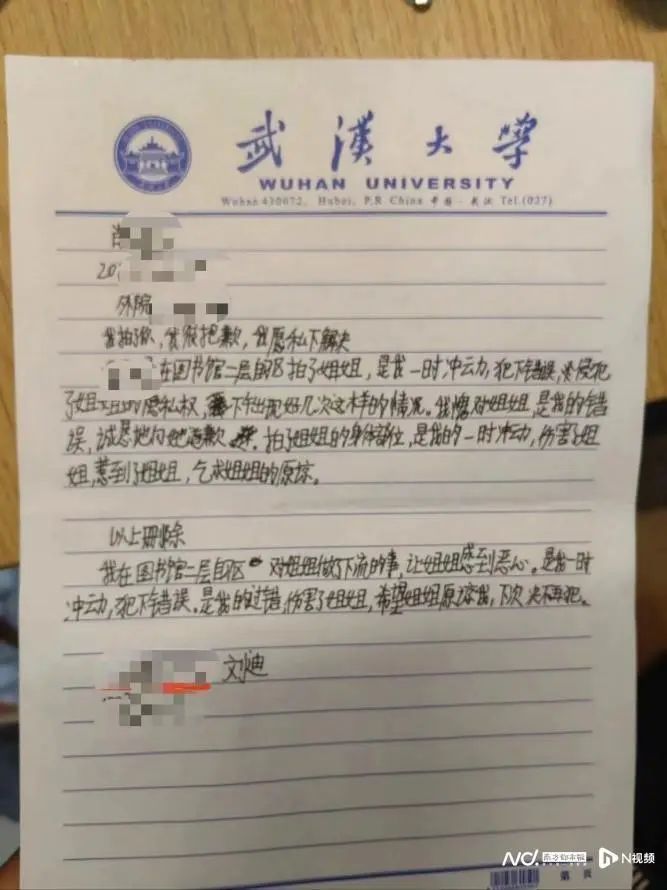 武漢大學
WUHAN UNIVERSITY
Wuhan 430072, Hubei, P.R China 中国·武汉 Tel.(027)
20
外院
我拍了你,我很抱歉,我愿私下解决
在图书馆二层自区拍了姐姐,是我一时冲动,犯下错误,侵犯
了姐姐的隐私权,下午出现好几次这样的情况。我愧对姐姐,是我的错
误,诚恳地向她道歉,拍了姐姐的身体部位,是我的一时冲动,伤害了姐
姐,惹到了姐姐,乞求姐姐的原谅。
以上删除
我在图书馆二层自区对姐姐做了下流的事,让姐姐感到恶心。是我一时
冲动,犯下错误。是我的过错,伤害了姐姐,希望姐姐原谅我,下次决不再犯。
刘迪
第 页
南方都市报 N视频